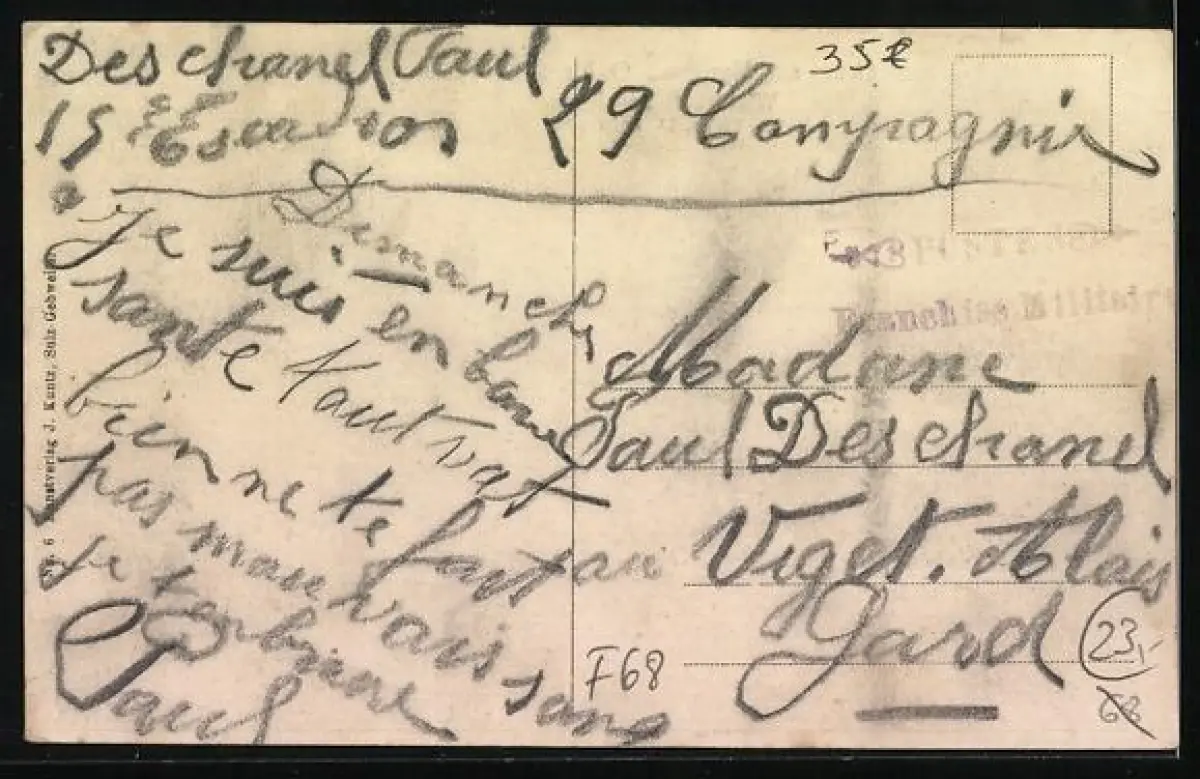 Deschanel Paul
35€
15e Escadron 29 Compagnie
Dimanche
Je suis en bone
sante tout vat
bien ne te fait
pas mauvais sang
Je tenbrase
Paul
Franchise Militaire
Madame
Paul Deschanel
Viget. Alais
Gard
23,-
68
F68
No. 6 Kunstverlag J. Kuntz, Sulz-Gebweiler